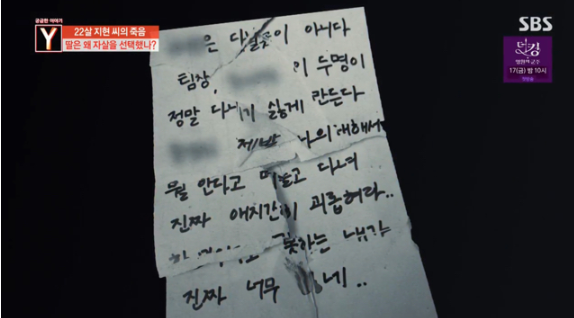 궁금한 이야기
Y
22살 지현 씨의 죽음
딸은 왜 자살을 선택했나?
SBS
더킹
영원의 군주
17(금) 밤 10시
은 다닐곳이 아니다
팀장, 이 두명이
정말 다니기 싫게 만든다
제발 나의 대해서
뭘 안다고 떠들고 다녀
진짜 애지간히 괴롭혀라..
못하는 내가
진짜 너무